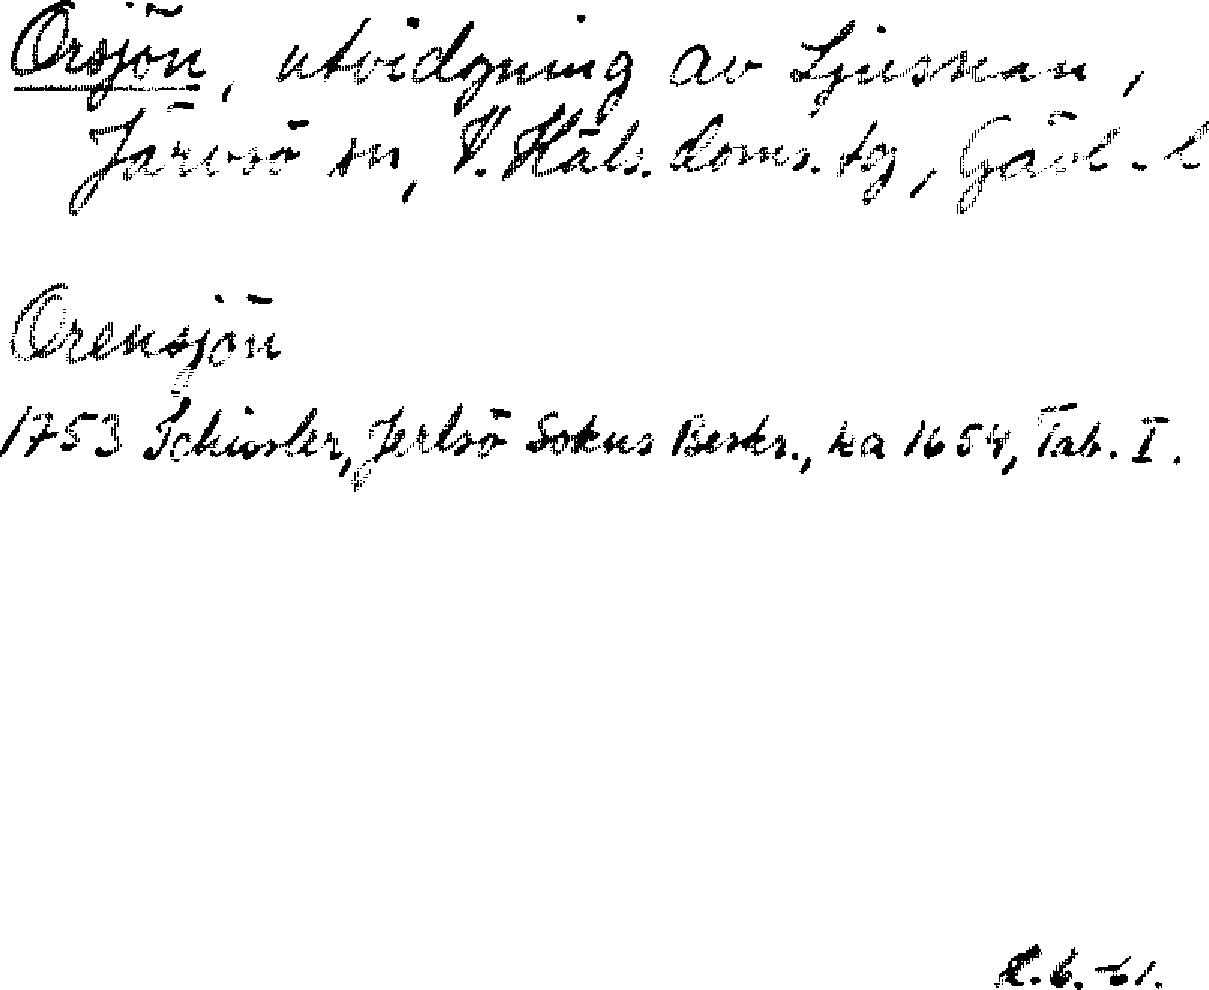 Orsjön, utvidgning av Ljusnan,
Järvsö sn, V. Häls. doms. tg, Gävl. l
Orensjön
1753 Schissler, Jerlsö Sokns Beskr., ka 1654, Tab. I.